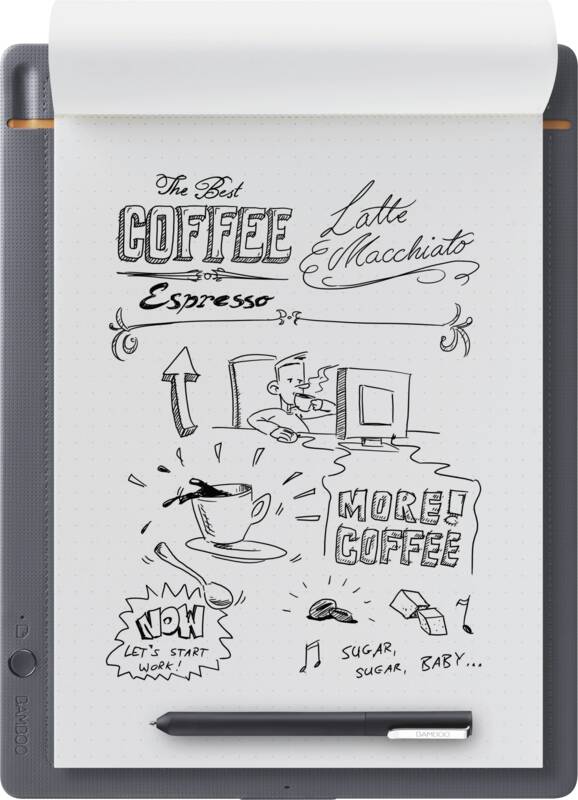 The Best
COFFEE
Latte
Macchiato
Espresso
MORE!
COFFEE
NOW
LET'S START
WORK!
SUGAR,
SUGAR, BABY...
BAMBOO
BAMBOO